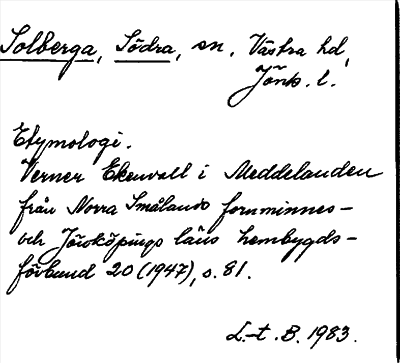 Solberga, Södra, sn, Västra hd,
Jönk. l.
Etymologi.
Verner Ekenvall i Meddelanden
från Norra Smålands fornminnes-
och Jönköpings läns hembygds-
förbund 20 (1947), s. 81.
L-t. B. 1983.